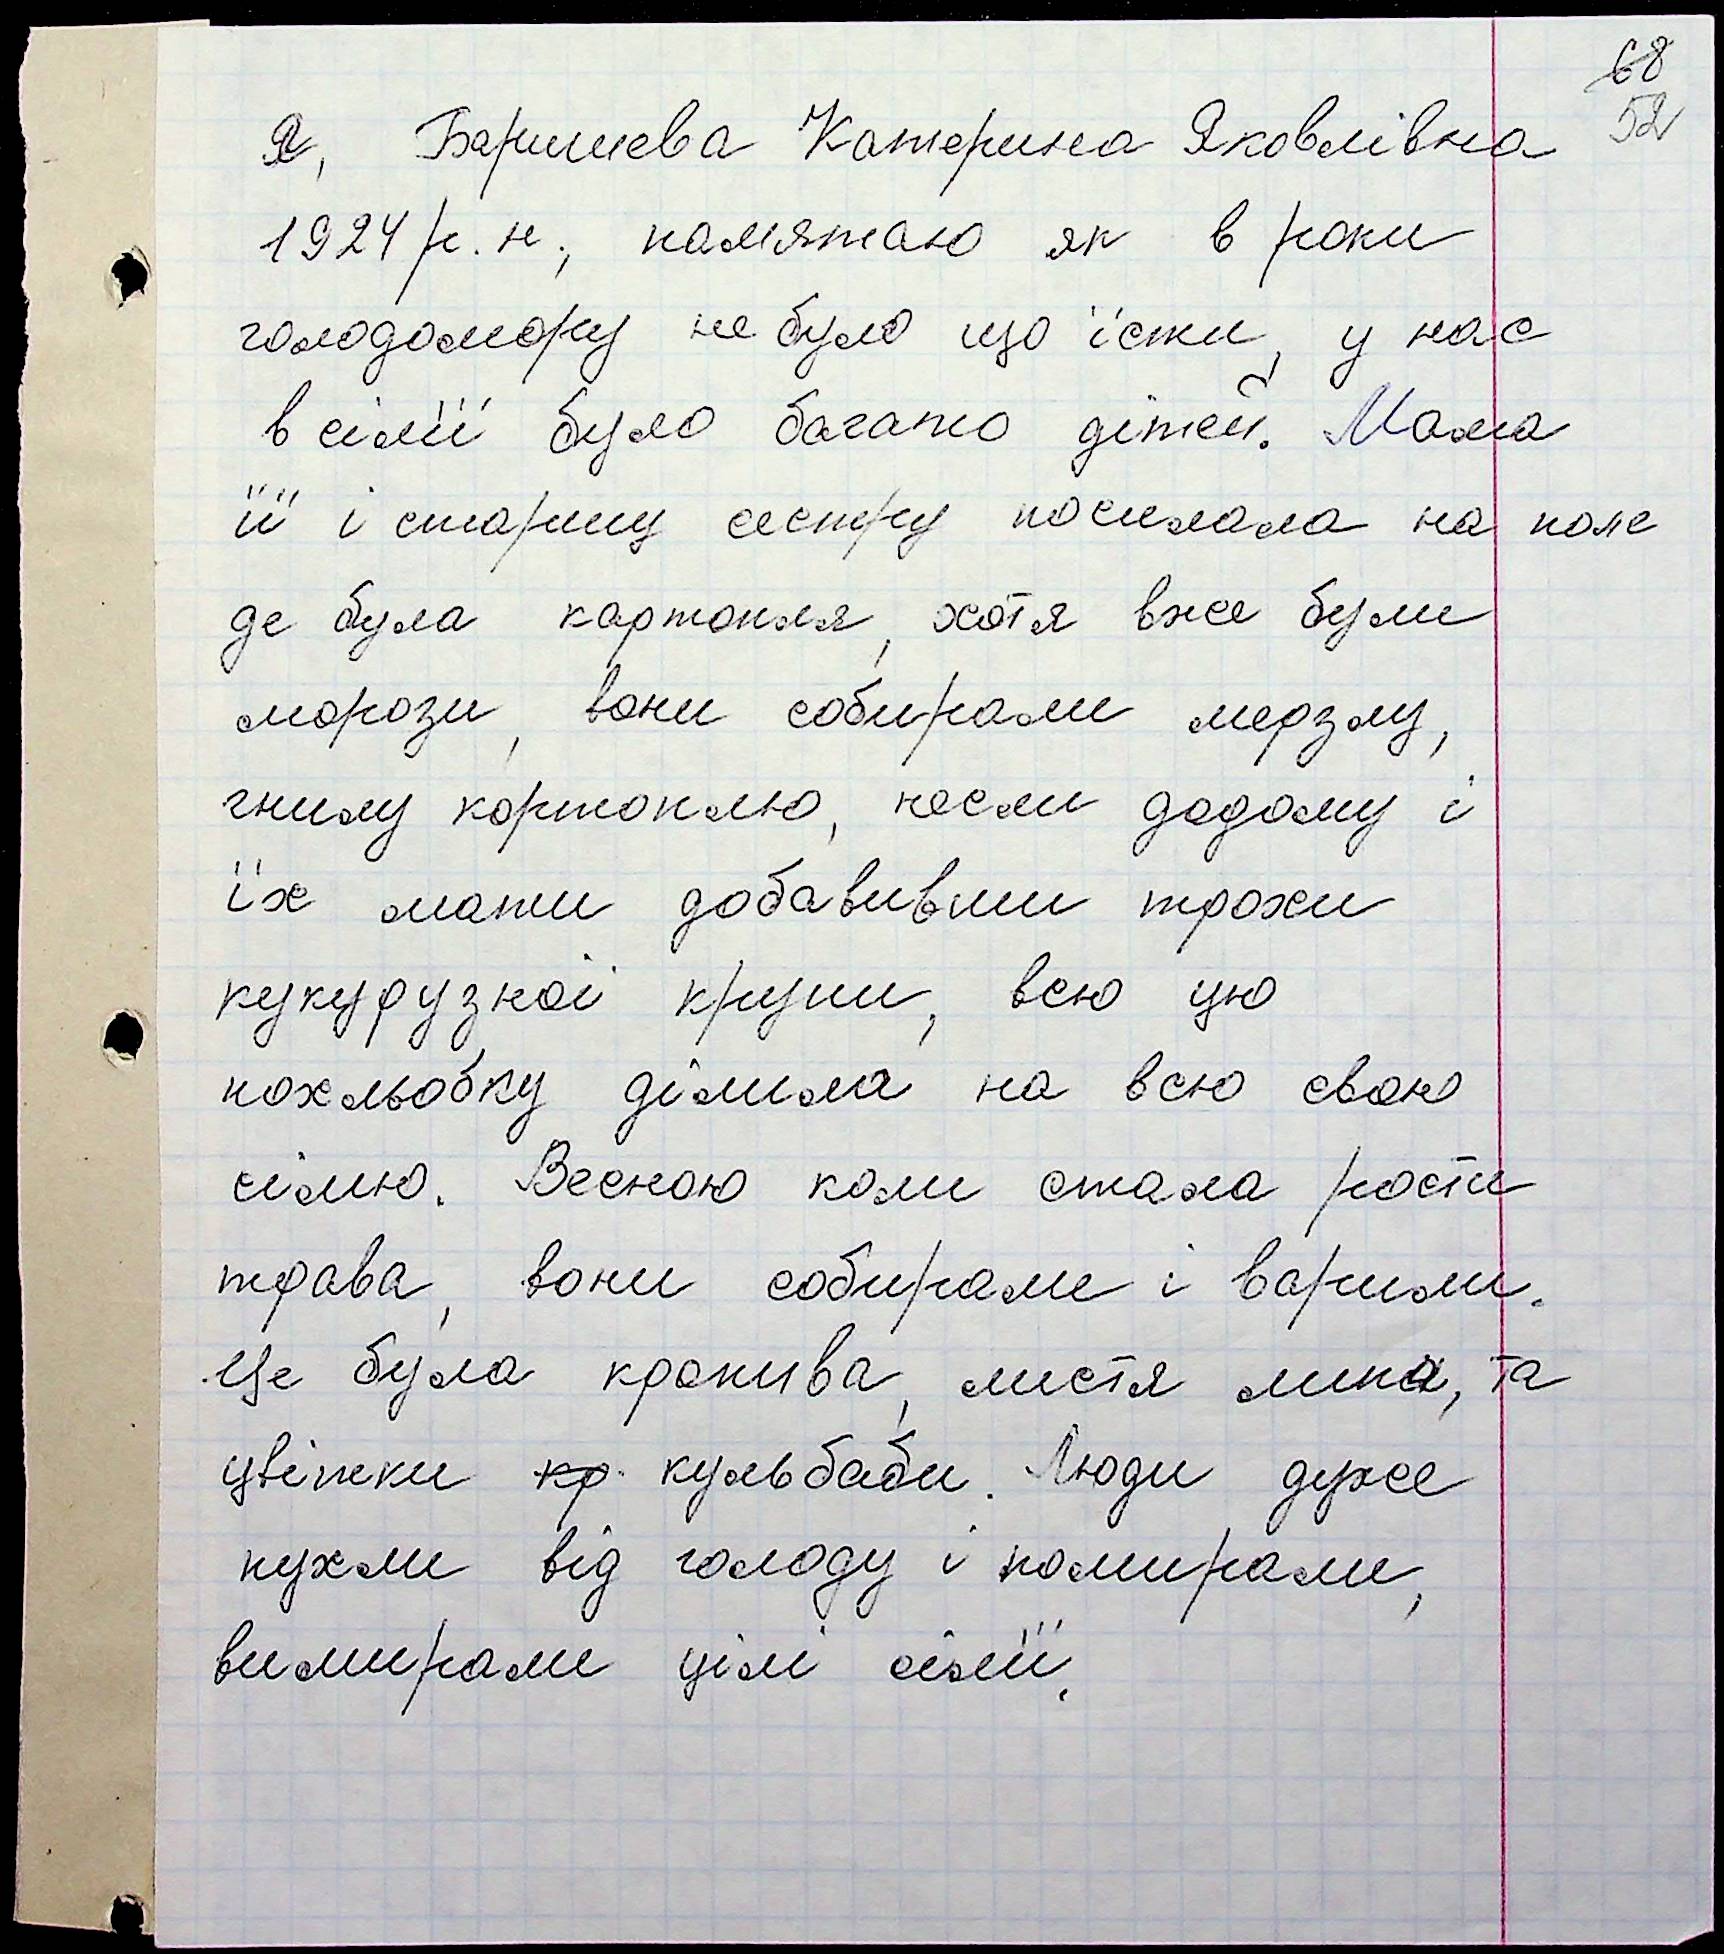 68
52
Я, Баришева Катерина Яковлівна
1924 р. н., памятаю як в роки
голодомору не було що їсти, у нас
в сімії було багато дітей. Мама
її і старшу сестру посилала на поле
де була картопля, хотя вже були
морози, вони собирали мерзлу,
гнилу картоплю, несли додому і
їх мати добавивши трохи
кукурузної крупи, всю цю
похльобку ділила на всю свою
сімю. Весною коли стала рости
трава, вони собирали і варили.
Це була кропива, листя липи, та
цвітки кр кульбаби. Люди дуже
пухли від голоду і помирали,
вимирали цілі сімії.